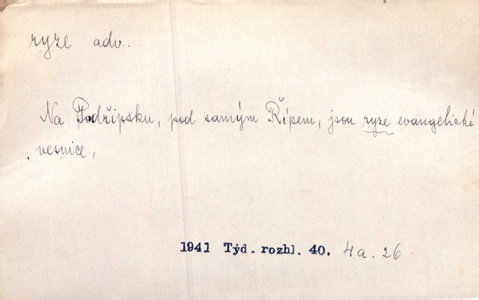 ryze adv.
Na Podřipsku, pod samým Řípem, jsou ryze evangelické
vesnice,
1941 Týd. rozhl. 40. 4a. 26.